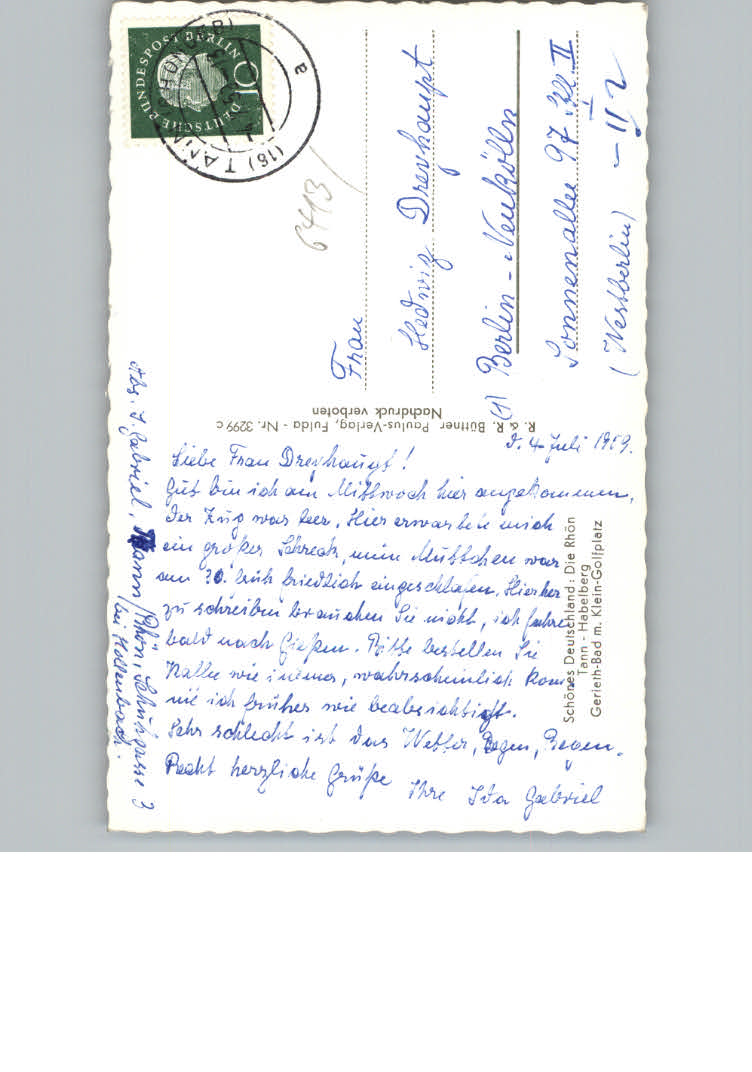 d. 4. Juli 1959.
Liebe Frau Dreyhaupt!
Gut bin ich am Mittwoch hier angekommen.
Der Zug war leer. Hier erwartete mich
ein großer Schreck, mein Muttchen war
am 30. früh friedlich eingeschlafen. Hierher
zu schreiben brauchen Sie nicht, ich fahre
bald nach Gießen. Bitte bestellen Sie
Kalle wie immer, wahrscheinlich kom-
me ich früher wie beabsichtigt.
Sehr schlecht ist das Wetter, Regen, Regen.
Recht herzliche Grüße
Ihre Ida Gabriel
Abs. I. Gabriel, Tann/Rhön, Schuhgasse 3
bei Hollenbach.
Schönes Deutschland: Die Rhön
Tann - Habelberg
Gerieth-Bad m. Klein-Golfplatz
R. & R. Büttner, Paulus-Verlag, Fulda - Nr. 3299 c
Nachdruck verboten
Frau
Hedwig Dreyhaupt
(1) Berlin - Neukölln
Sonnenallee 97
II
(Westberlin)
6413
DEUTSCHE BUNDESPOST BERLIN
10
(16) TANN
a